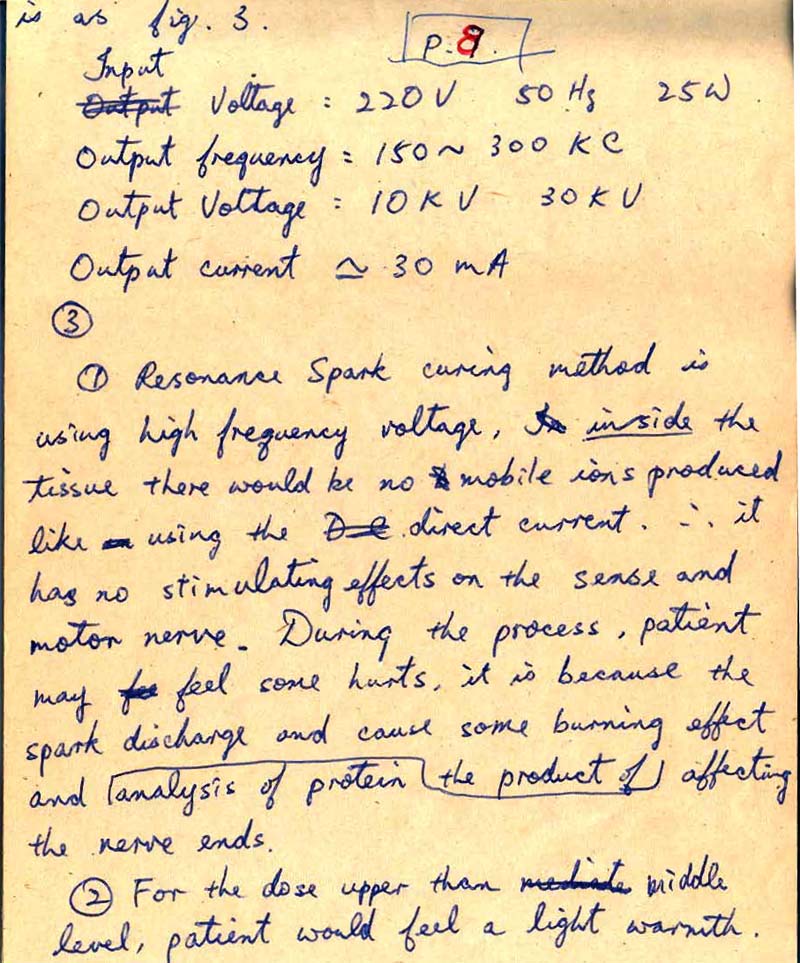 is as fig. 3.
P. 8.
Input
Output Voltage : 220V 50 Hz 25W
Output frequency = 150~ 300 KC
Output Voltage : 10 K V 30 K V
Output current ≃ 30 mA
③
① Resonance Spark curing method is
using high frequency voltage, In inside the
tissue there would be no mobile ions produced
like using the D C direct current. ∴ it
has no stimulating effects on the sense and
motor nerve. During the process, patient
may feel some hurts, it is because the
spark discharge and cause some burning effect
and analysis of protein the product of affecting
the nerve ends.
② For the dose upper than mediate middle
level, patient would feel a light warmth.